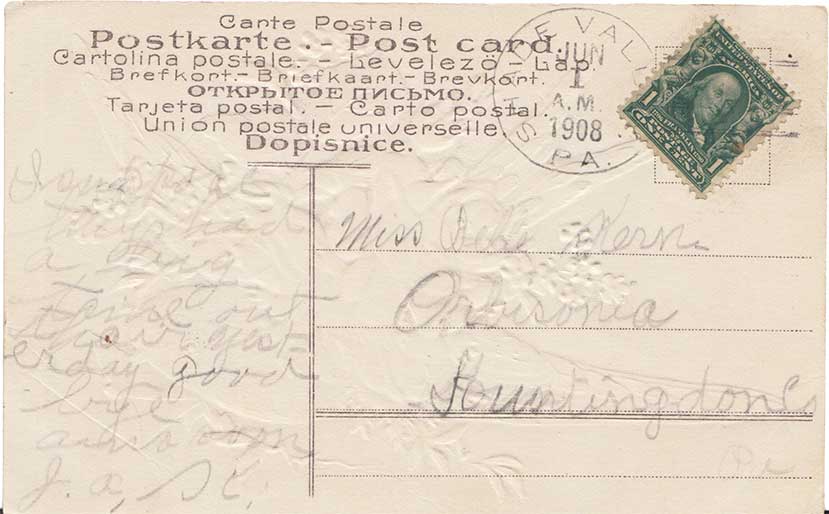 Carte Postale
Postkarte.- Post card.
Cartolina postale. - Levelező - Lap.
Brefkort.- Briefkaart.- Brevkort.
ОТКРЫТОЕ ПИСЬМО.
Tarjeta postal. - Carto postal.
Union postale universelle.
Dopisnice.
SHADE VALLEY
JUN
1
A.M.
1908
PA.
1
1
had
a
time out
yest-
erday good
bye
J. a, K.
Miss Kern
Orbisonia
Huntingdon Co
Pa